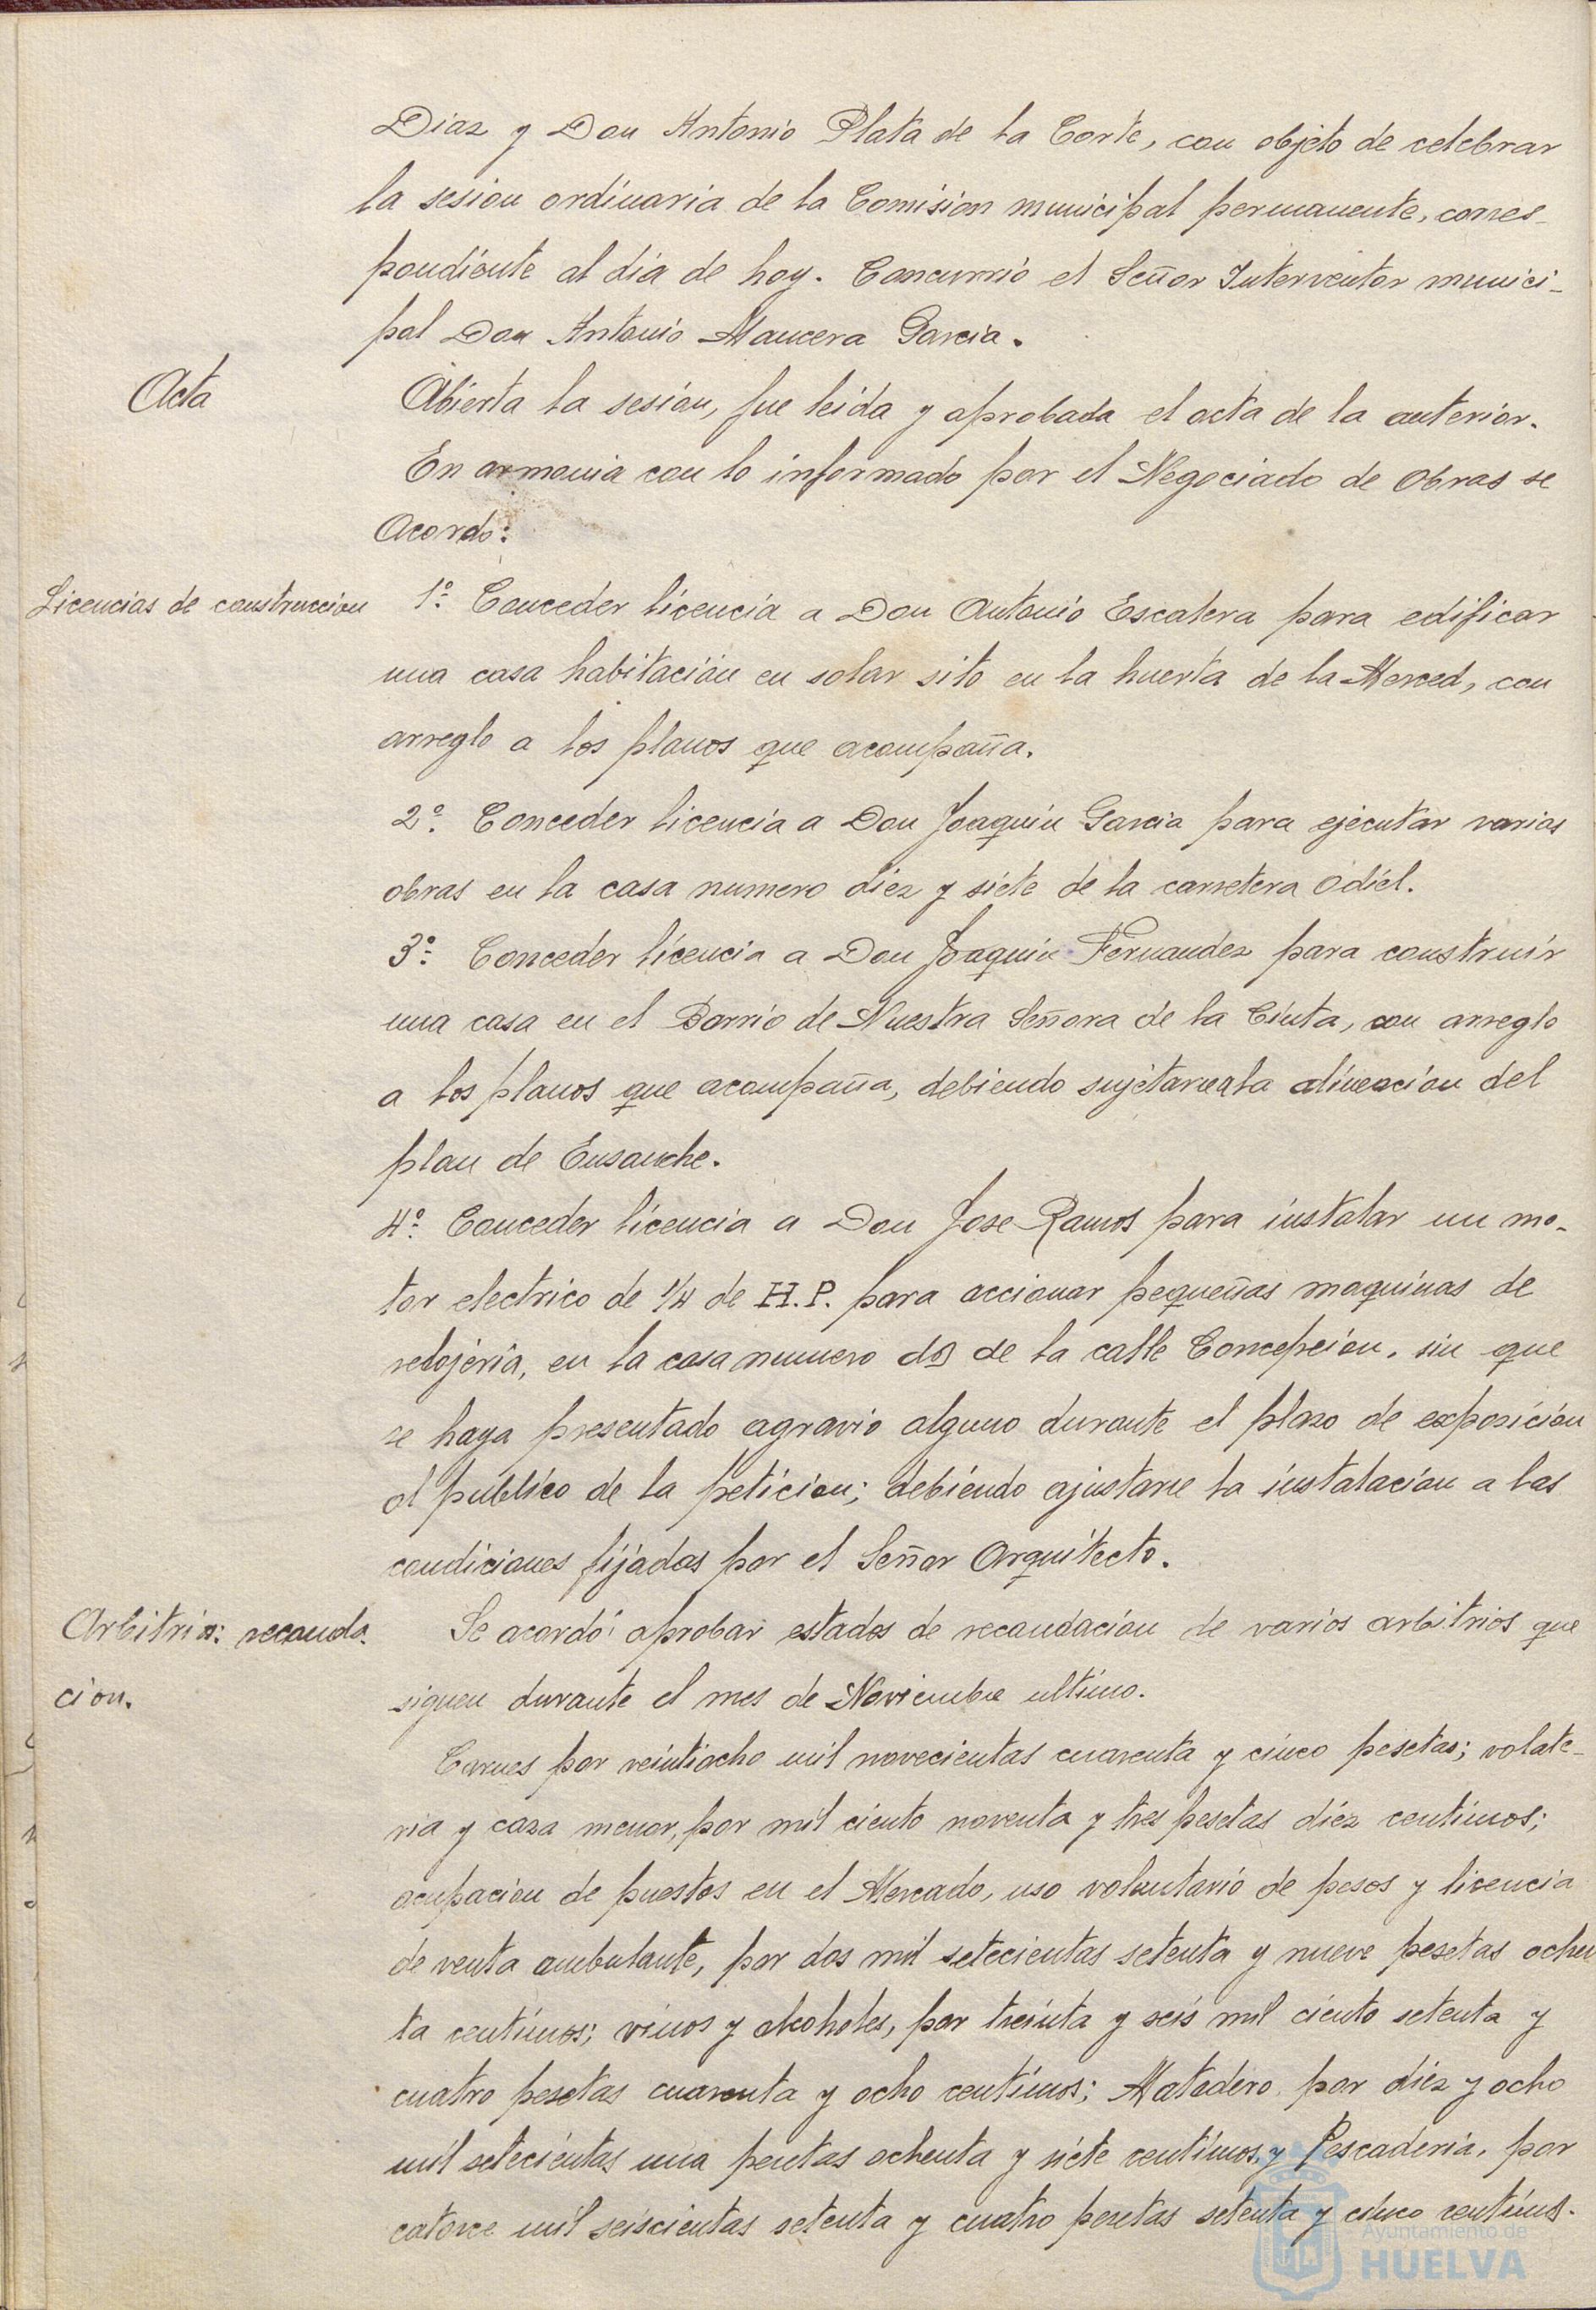 Diaz y Don Antonio Plata de la Corte, con objeto de celebrar
la sesion ordinaria de la Comision municipal permanente, corres-
pondiente al dia de hoy. Concurrió el Señor Interventor munici-
pal Don Antonio Mancera Garcia.
Acta
Abierta la sesion, fue leida y aprobada el acta de la anterior.
En armonia con lo informado por el Negociado de Obras se
Acordo:
Licencias de construccion
1º. Conceder licencia a Don Antonio Escalera para edificar
una casa habitación en solar sito en la huerta de la Merced, con
arreglo a los planos que acompaña.
2º. Conceder licencia a Don Joaquin Garcia para ejecutar varias
obras en la casa numero diez y siete de la carretera Odiel.
3º. Conceder licencia a Don Joaquin Fernandez para construir
una casa en el Barrio de Nuestra Señora de la Cinta, con arreglo
a los planos que acompaña, debiendo sujetarse a la alineacion del
plan de Ensanche.
4º. Conceder licencia a Don Jose Ramos para instalar un mo-
tor electrico de 1/4 de H.P. para accionar pequeñas maquinas de
relojeria, en la casa numero dos de la calle Concepcion, sin que
se haya presentado agravio alguno durante el plazo de exposición
al público de la peticion; debiendo ajustarse la instalacion a las
condiciones fijadas por el Señor Arquitecto.
Arbitrios: recauda-
cion.
Se acordó aprobar estados de recaudacion de varios arbitrios que
siguen durante el mes de Noviembre ultimo.
Carnes por veintiocho mil novecientas cuarenta y cinco pesetas; volate-
ria y caza menor, por mil ciento noventa y tres pesetas diez centimos;
ocupacion de puestos en el Mercado, uso voluntario de pesos y licencia
de venta ambulante, por dos mil setecientas setenta y nueve pesetas ochen
ta centimos; vinos y alcoholes, por treinta y seis mil ciento setenta y
cuatro pesetas cuarenta y ocho centimos; Matadero por diez y ocho
mil setecientas una pesetas ochenta y siete centimos, y Pescaderia, por
catorce mil seiscientas setenta y cuatro pesetas setenta y cinco centimos.
Ayuntamiento de
HUELVA